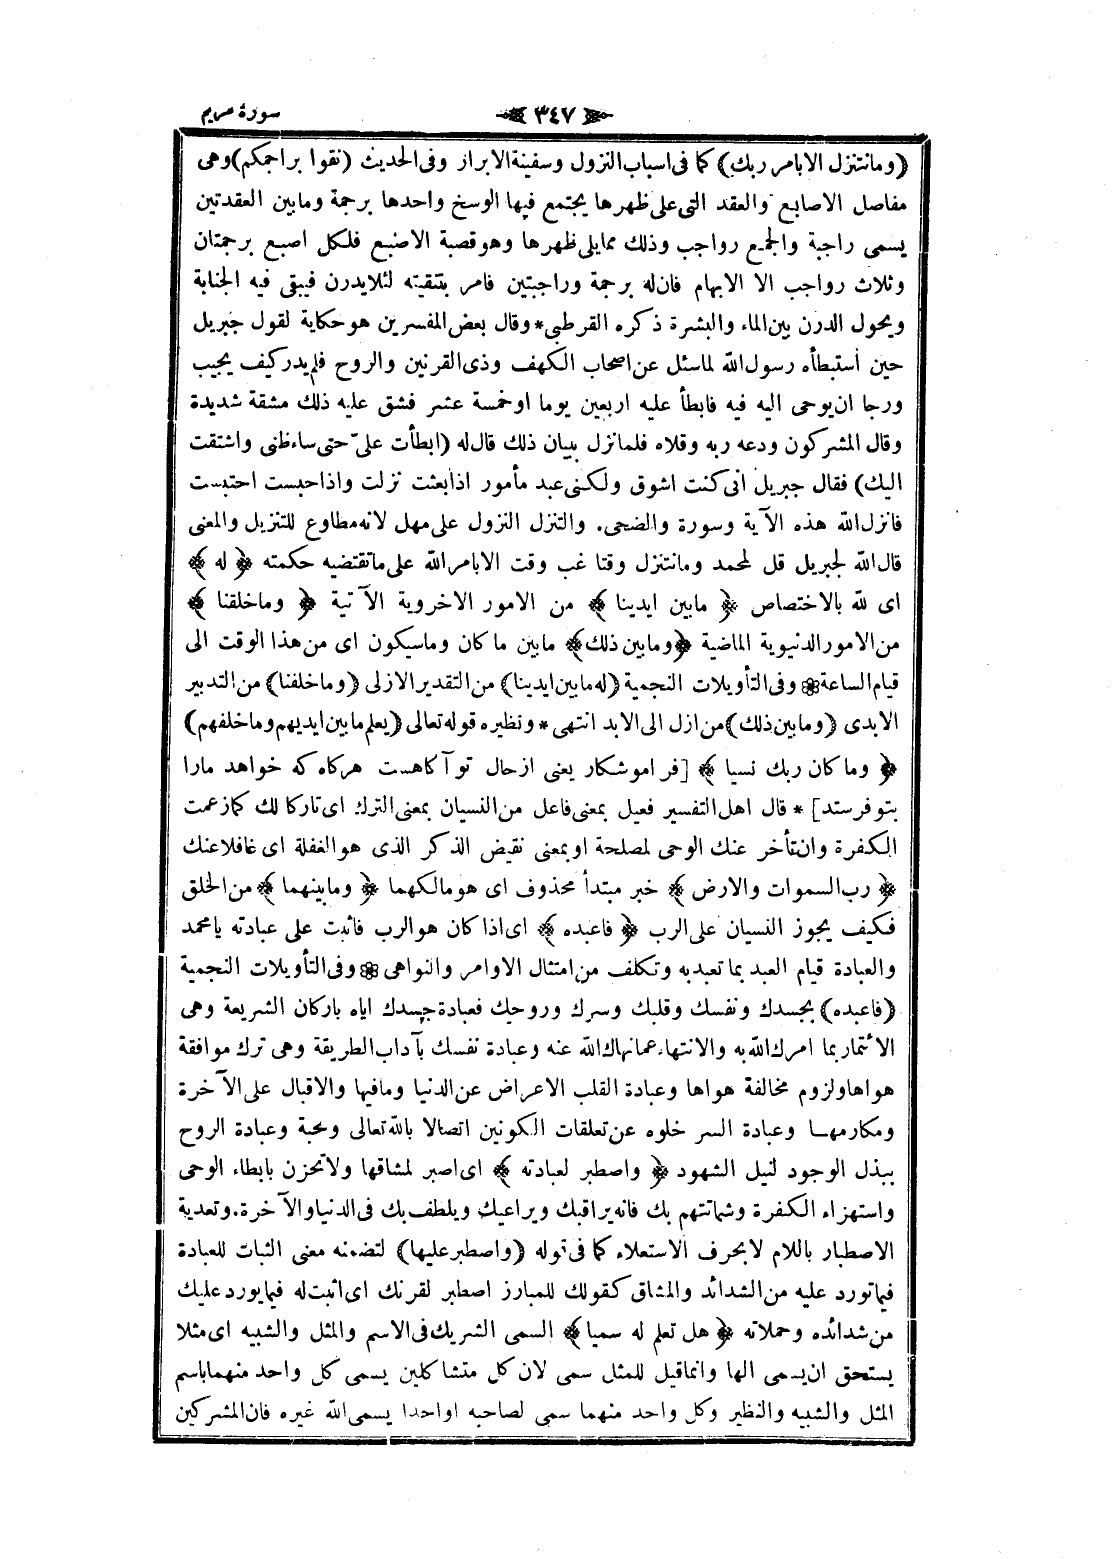 سورة مريم
٣٤٧
(وما نتنزل الا بامر ربك) كما فى اسباب النزول وسفينة الابرار وفى الحديث (نقوا براجمكم) وهى
مفاصل الاصابع والعقد التى على ظهرها يجتمع فيها الوسخ واحدها برجمة وما بين العقدتين
يسمى راجبة والجمع رواجب وذلك مما يلى ظهرها وهو قصبة الاصبع فلكل اصبع برجمتان
وثلاث رواجب الا الابهام فان له برجمة وراجبتين فامر بتنقيته لئلا يدرن فيبقى فيه الجنابة
ويحول الدرن بين الماء والبشرة ذكره القرطبى * وقال بعض المفسرين هو حكاية لقول جبريل
حين أستبطأه رسول الله لما سئل عن اصحاب الكهف وذى القرنين والروح فلم يدر كيف يجيب
ورجا ان يوحى اليه فيه فابطأ عليه اربعين يوما او خمسة عشر فشق عليه ذلك مشقة شديدة
وقال المشركون ودعه ربه وقلاه فلما نزل ببيان ذلك قال له (ابطأت علىّ حتى ساء ظنى واشتقت
اليك) فقال جبريل انى كنت اشوق ولكنى عبد مأمور اذا بعثت نزلت واذا حبست احتبست
فانزل الله هذه الآية وسورة والضحى. والتنزل النزول على مهل لانه مطاوع للتنزيل والمعنى
قال الله لجبريل قل لمحمد وما نتنزل وقتا غب وقت الا بامر الله على ما تقتضيه حكمته ﴿ له ﴾
اى لله بالاختصاص ﴿ ما بين ايدينا ﴾ من الامور الاخروية الآتية ﴿ وما خلفنا ﴾
من الامور الدنيوية الماضية ﴿ وما بين ذلك ﴾ ما بين ما كان وما سيكون اى من هذا الوقت الى
قيام الساعة ❁ وفى التأويلات النجمية (له ما بين ايدينا) من التقدير الازلى (وما خلفنا) من التدبير
الابدى (وما بين ذلك) من ازل الى الابد انتهى * ونظيره قوله تعالى (يعلم ما بين ايديهم وما خلفهم)
﴿ وما كان ربك نسيا ﴾ [فراموشكار يعنى از حال تو آكاهست هركاه كه خواهد مارا
بتو فرستد] * قال اهل التفسير فعيل بمعنى فاعل من النسيان بمعنى الترك اى تاركا لك كما زعمت
الكفرة وان تأخر عنك الوحى لمصلحة او بمعنى نقيض الذكر الذى هو الغفلة اى غافلا عنك
﴿ رب السموات والارض ﴾ خبر مبتدأ محذوف اى هو مالكهما ﴿ وما بينهما ﴾ من الخلق
فكيف يجوز النسيان على الرب ﴿ فاعبده ﴾ اى اذا كان هو الرب فاثبت على عبادته يا محمد
والعبادة قيام العبد بما تعبد به وتكلف من امتثال الاوامر والنواهى ❁ وفى التأويلات النجمية
(فاعبده) بجسدك ونفسك وقلبك وسرك وروحك فعبادة جسدك اياه باركان الشريعة وهى
الائتمار بما امرك الله به والانتهاء عما نهاك الله عنه وعبادة نفسك بآداب الطريقة وهى ترك موافقة
هواها ولزوم مخالفة هواها وعبادة القلب الاعراض عن الدنيا وما فيها والاقبال على الآخرة
ومكارمها وعبادة السر خلوه عن تعلقات الكونين اتصالا بالله تعالى ومحبة وعبادة الروح
ببذل الوجود لنيل الشهود ﴿ واصطبر لعبادته ﴾ اى اصبر لمشاقها ولا تحزن بابطاء الوحى
واستهزاء الكفرة وشماتتهم بك فانه يراقبك ويراعيك ويلطف بك فى الدنيا والآخرة. وتعدية
الاصطبار باللام لا بحرف الاستعلاء كما فى قوله (واصطبر عليها) لتضمنه معنى الثبات للعبادة
فيما تورد عليه من الشدائد والمشاق كقولك للمبارز اصطبر لقرنك اى اثبت له فيما يورد عليك
من شدائده وحملاته ﴿ هل تعلم له سميا ﴾ السمى الشريك فى الاسم والمثل والشبيه اى مثلا
يستحق ان يسمى الها وانما قيل للمثل سمى لان كل متشاكلين يسمى كل واحد منهما باسم
المثل والشبيه والنظير وكل واحد منهما سمى لصاحبه او احدا يسمى الله غيره فان المشركين